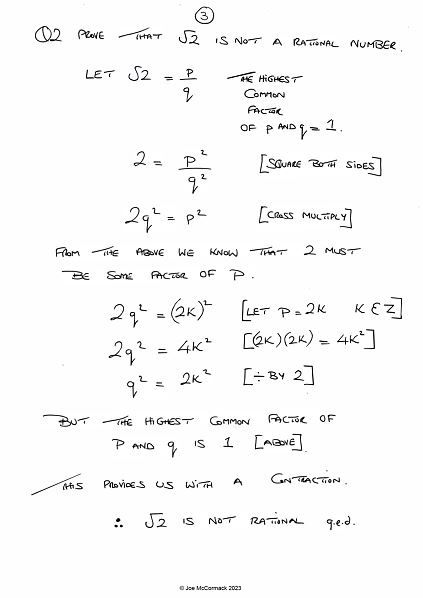 3
Q2 PROVE THAT √2 IS NOT A RATIONAL NUMBER.
LET √2 = p/q THE HIGHEST
COMMON
FACTOR
OF P AND q = 1.
2 = p²/q² [SQUARE BOTH SIDES]
2q² = p² [CROSS MULTIPLY]
FROM THE ABOVE WE KNOW THAT 2 MUST
BE SOME FACTOR OF P.
2q² = (2K)² [LET P = 2K K ∈ Z]
2q² = 4K² [(2K)(2K) = 4K²]
q² = 2K² [÷ BY 2]
BUT THE HIGHEST COMMON FACTOR OF
P AND q IS 1 [ABOVE].
THIS PROVIDES US WITH A CONTRACTION.
∴ √2 IS NOT RATIONAL q.e.d.
© Joe McCormack 2023